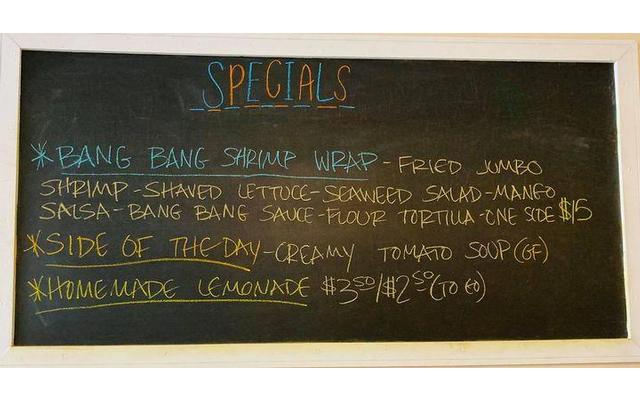 SPECIALS
*BANG BANG SHRIMP WRAP-FRIED JUMBO
SHRIMP-SHAVED LETTUCE-SEAWEED SALAD-MANGO
SALSA-BANG BANG SAUCE-FLOUR TORTILLA-ONE SIDE $15
*SIDE OF THE DAY-CREAMY TOMATO SOUP(GF)
*HOMEMADE LEMONADE $3.50/$2.50(TO GO)